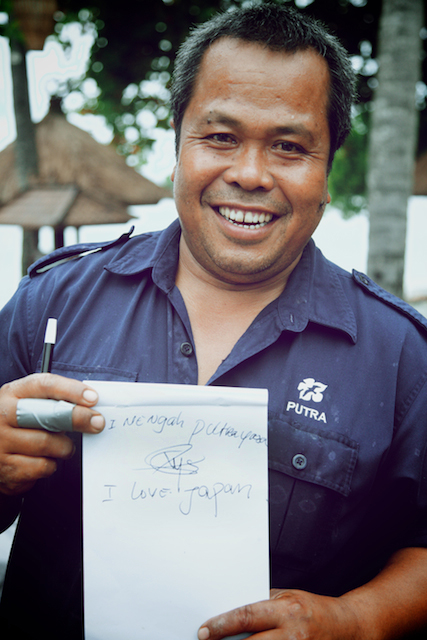 PUTRA
I Nengah putrayasa
I Love Japan